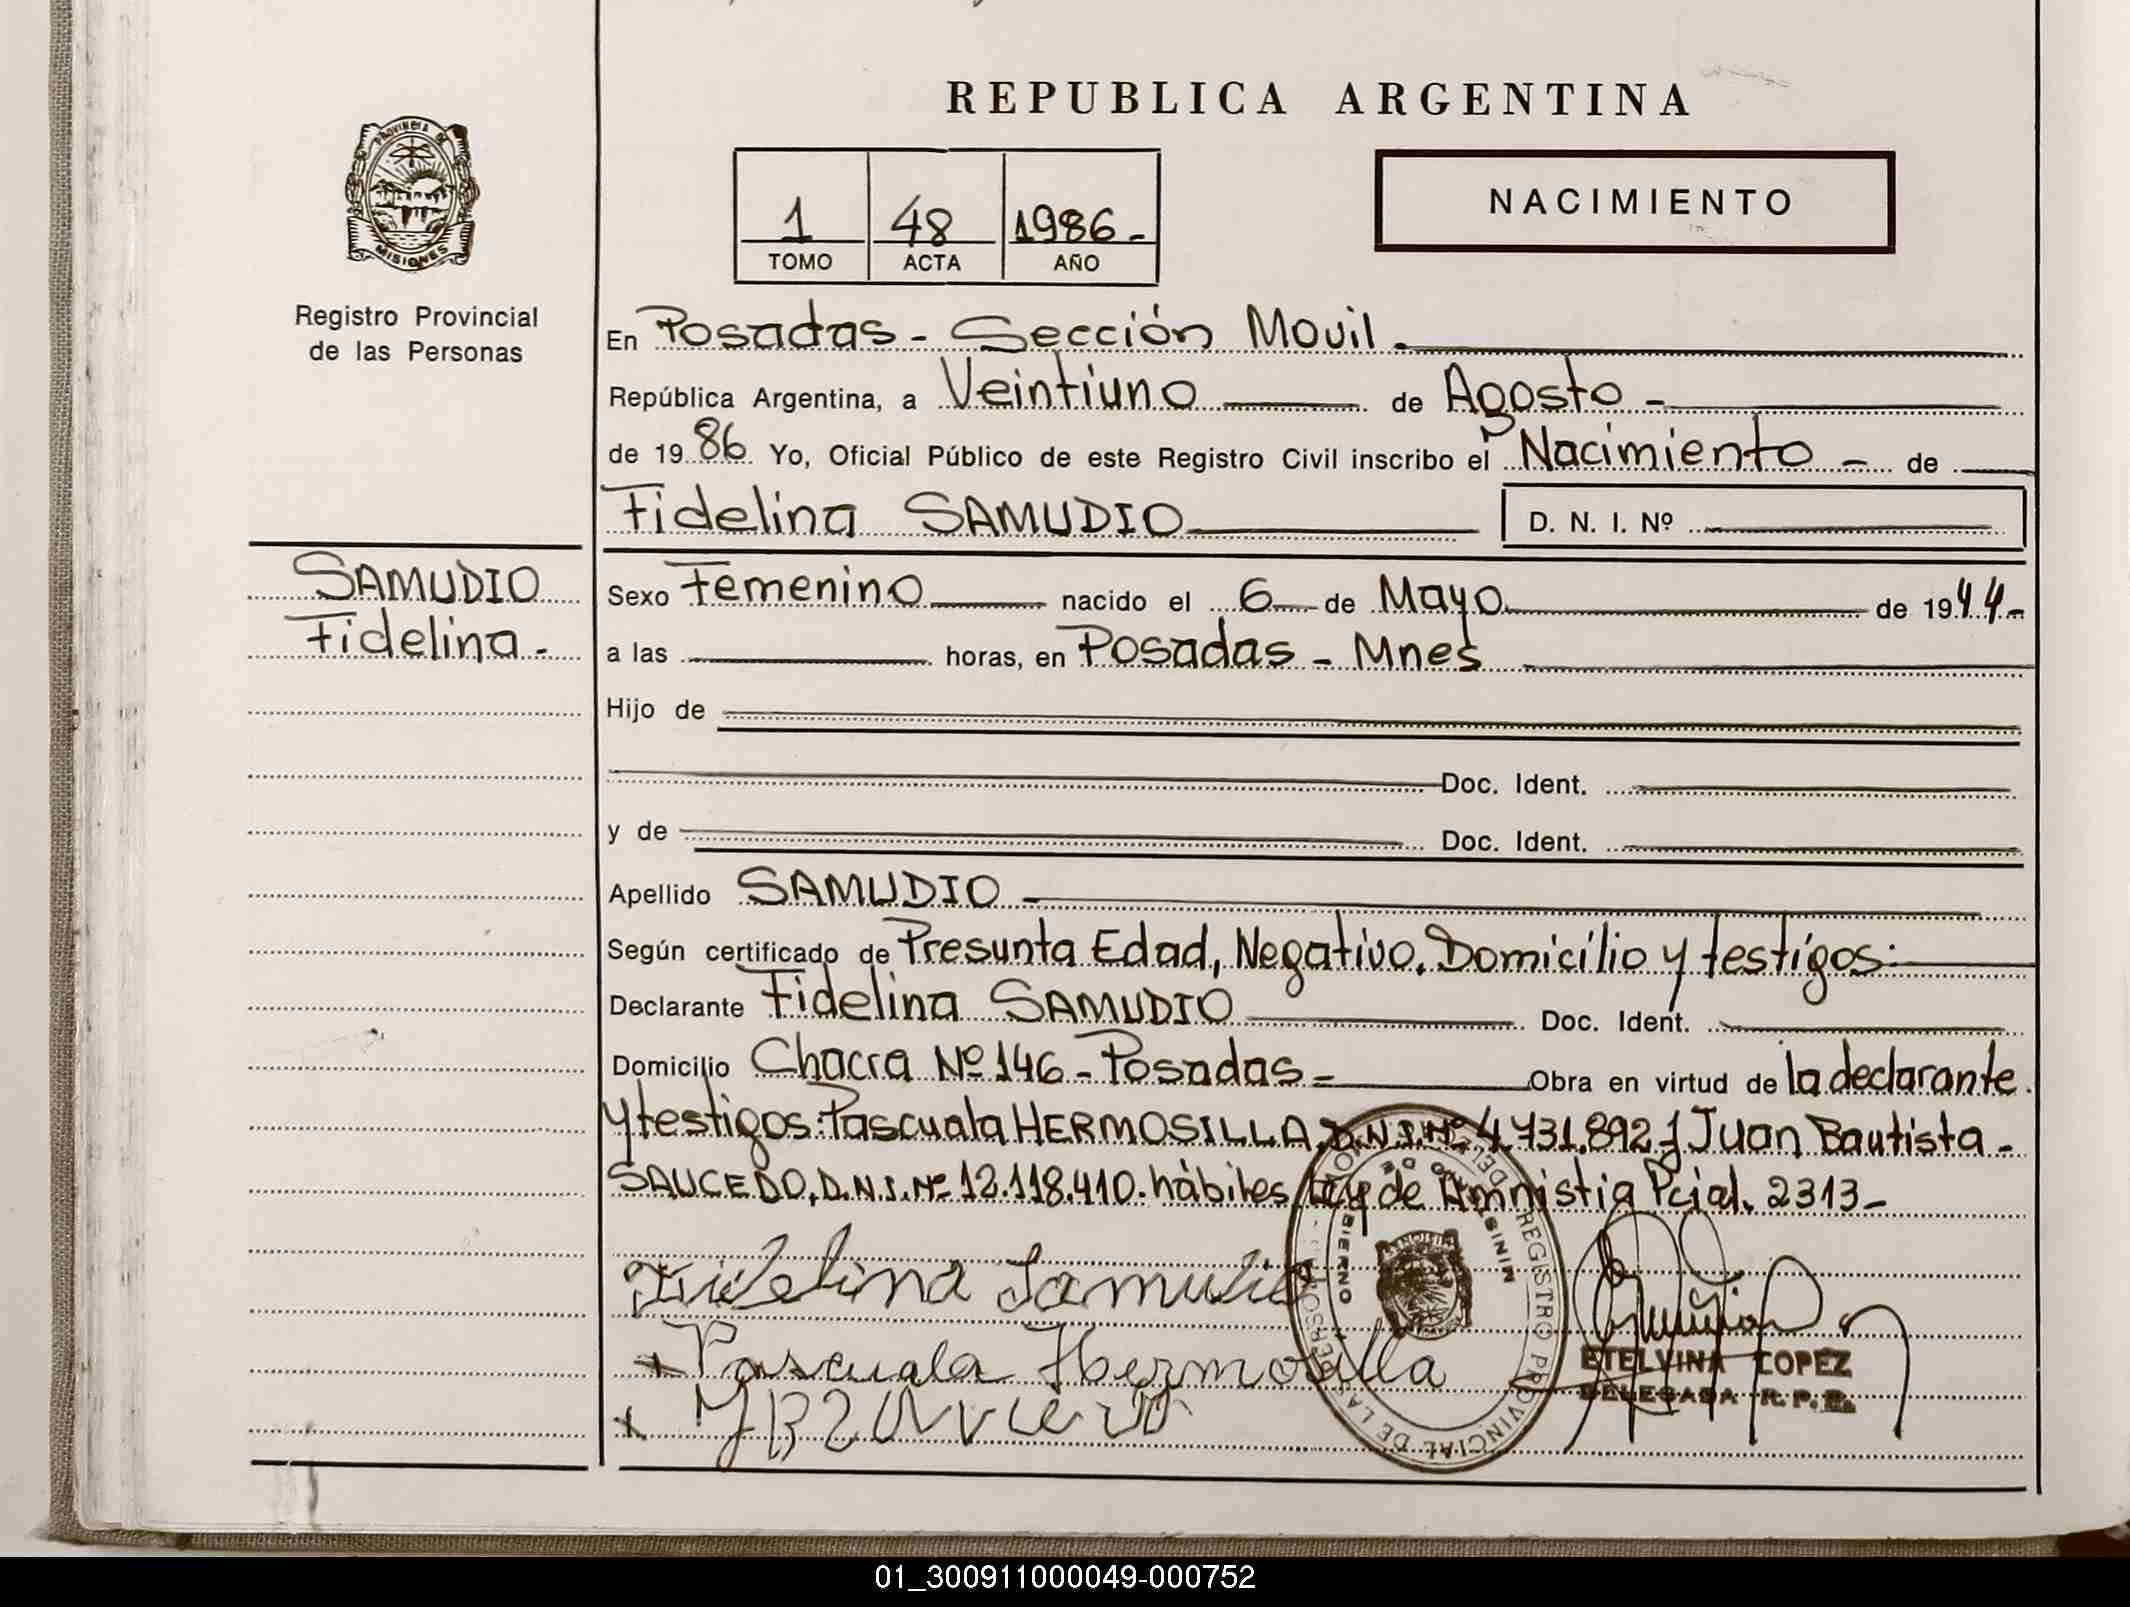 REPUBLICA ARGENTINA
PROVINCIA DE
MISIONES
1 48 1986-
TOMO ACTA AÑO
NACIMIENTO
Registro Provincial
de las Personas
En Posadas - Sección Movil.
República Argentina, a Veintiuno de Agosto -
de 19 86 Yo, Oficial Público de este Registro Civil inscribo el Nacimiento - de
Fidelina SAMUDIO D. N. I. Nº
SAMUDIO
Fidelina -
Sexo Femenino nacido el 6 de Mayo de 19 44-
a las horas, en Posadas - Mnes
Hijo de
Doc. Ident.
y de Doc. Ident.
Apellido SAMUDIO -
Según certificado de Presunta Edad, Negativo. Domicilio y testigos:
Declarante Fidelina SAMUDIO Doc. Ident.
Domicilio Chacra Nº 146 - Posadas - Obra en virtud de la declarante
y testigos: Pascuala HERMOSILLA, D.N.I. Nº 4.731.892 y Juan Bautista -
SAUCEDO, D.N.I. Nº 12.118.410. hàbiles Ley de Amnistia Pcial. 2313-
Fidelina Samudio
x Pascuala Hermosilla
x
REGISTRO PROVINCIAL DE LAS PERSONAS
ETELVINA LOPEZ
DELEGADA R. P. P.
01_300911000049-000752